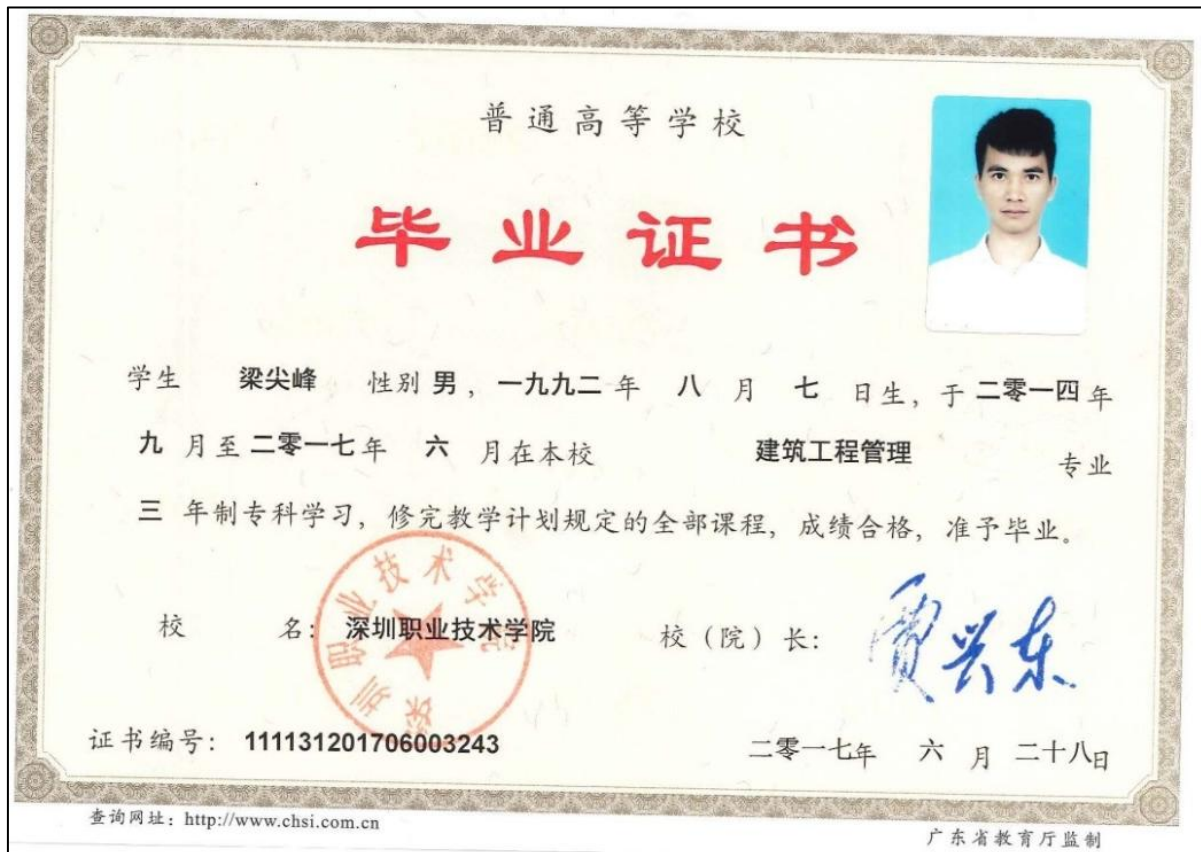 普通高等学校
毕业证书
学生 梁尖峰 性别 男，一九九二年 八 月 七 日生，于 二零一四年
九 月至 二零一七年 六 月在本校 建筑工程管理 专业
三 年制专科学习，修完教学计划规定的全部课程，成绩合格，准予毕业。
深圳职业技术学院
校 名：深圳职业技术学院 校（院）长：贾兴东
证书编号：111131201706003243 二零一七年 六 月 二十八日
查询网址：http://www.chsi.com.cn
广东省教育厅监制